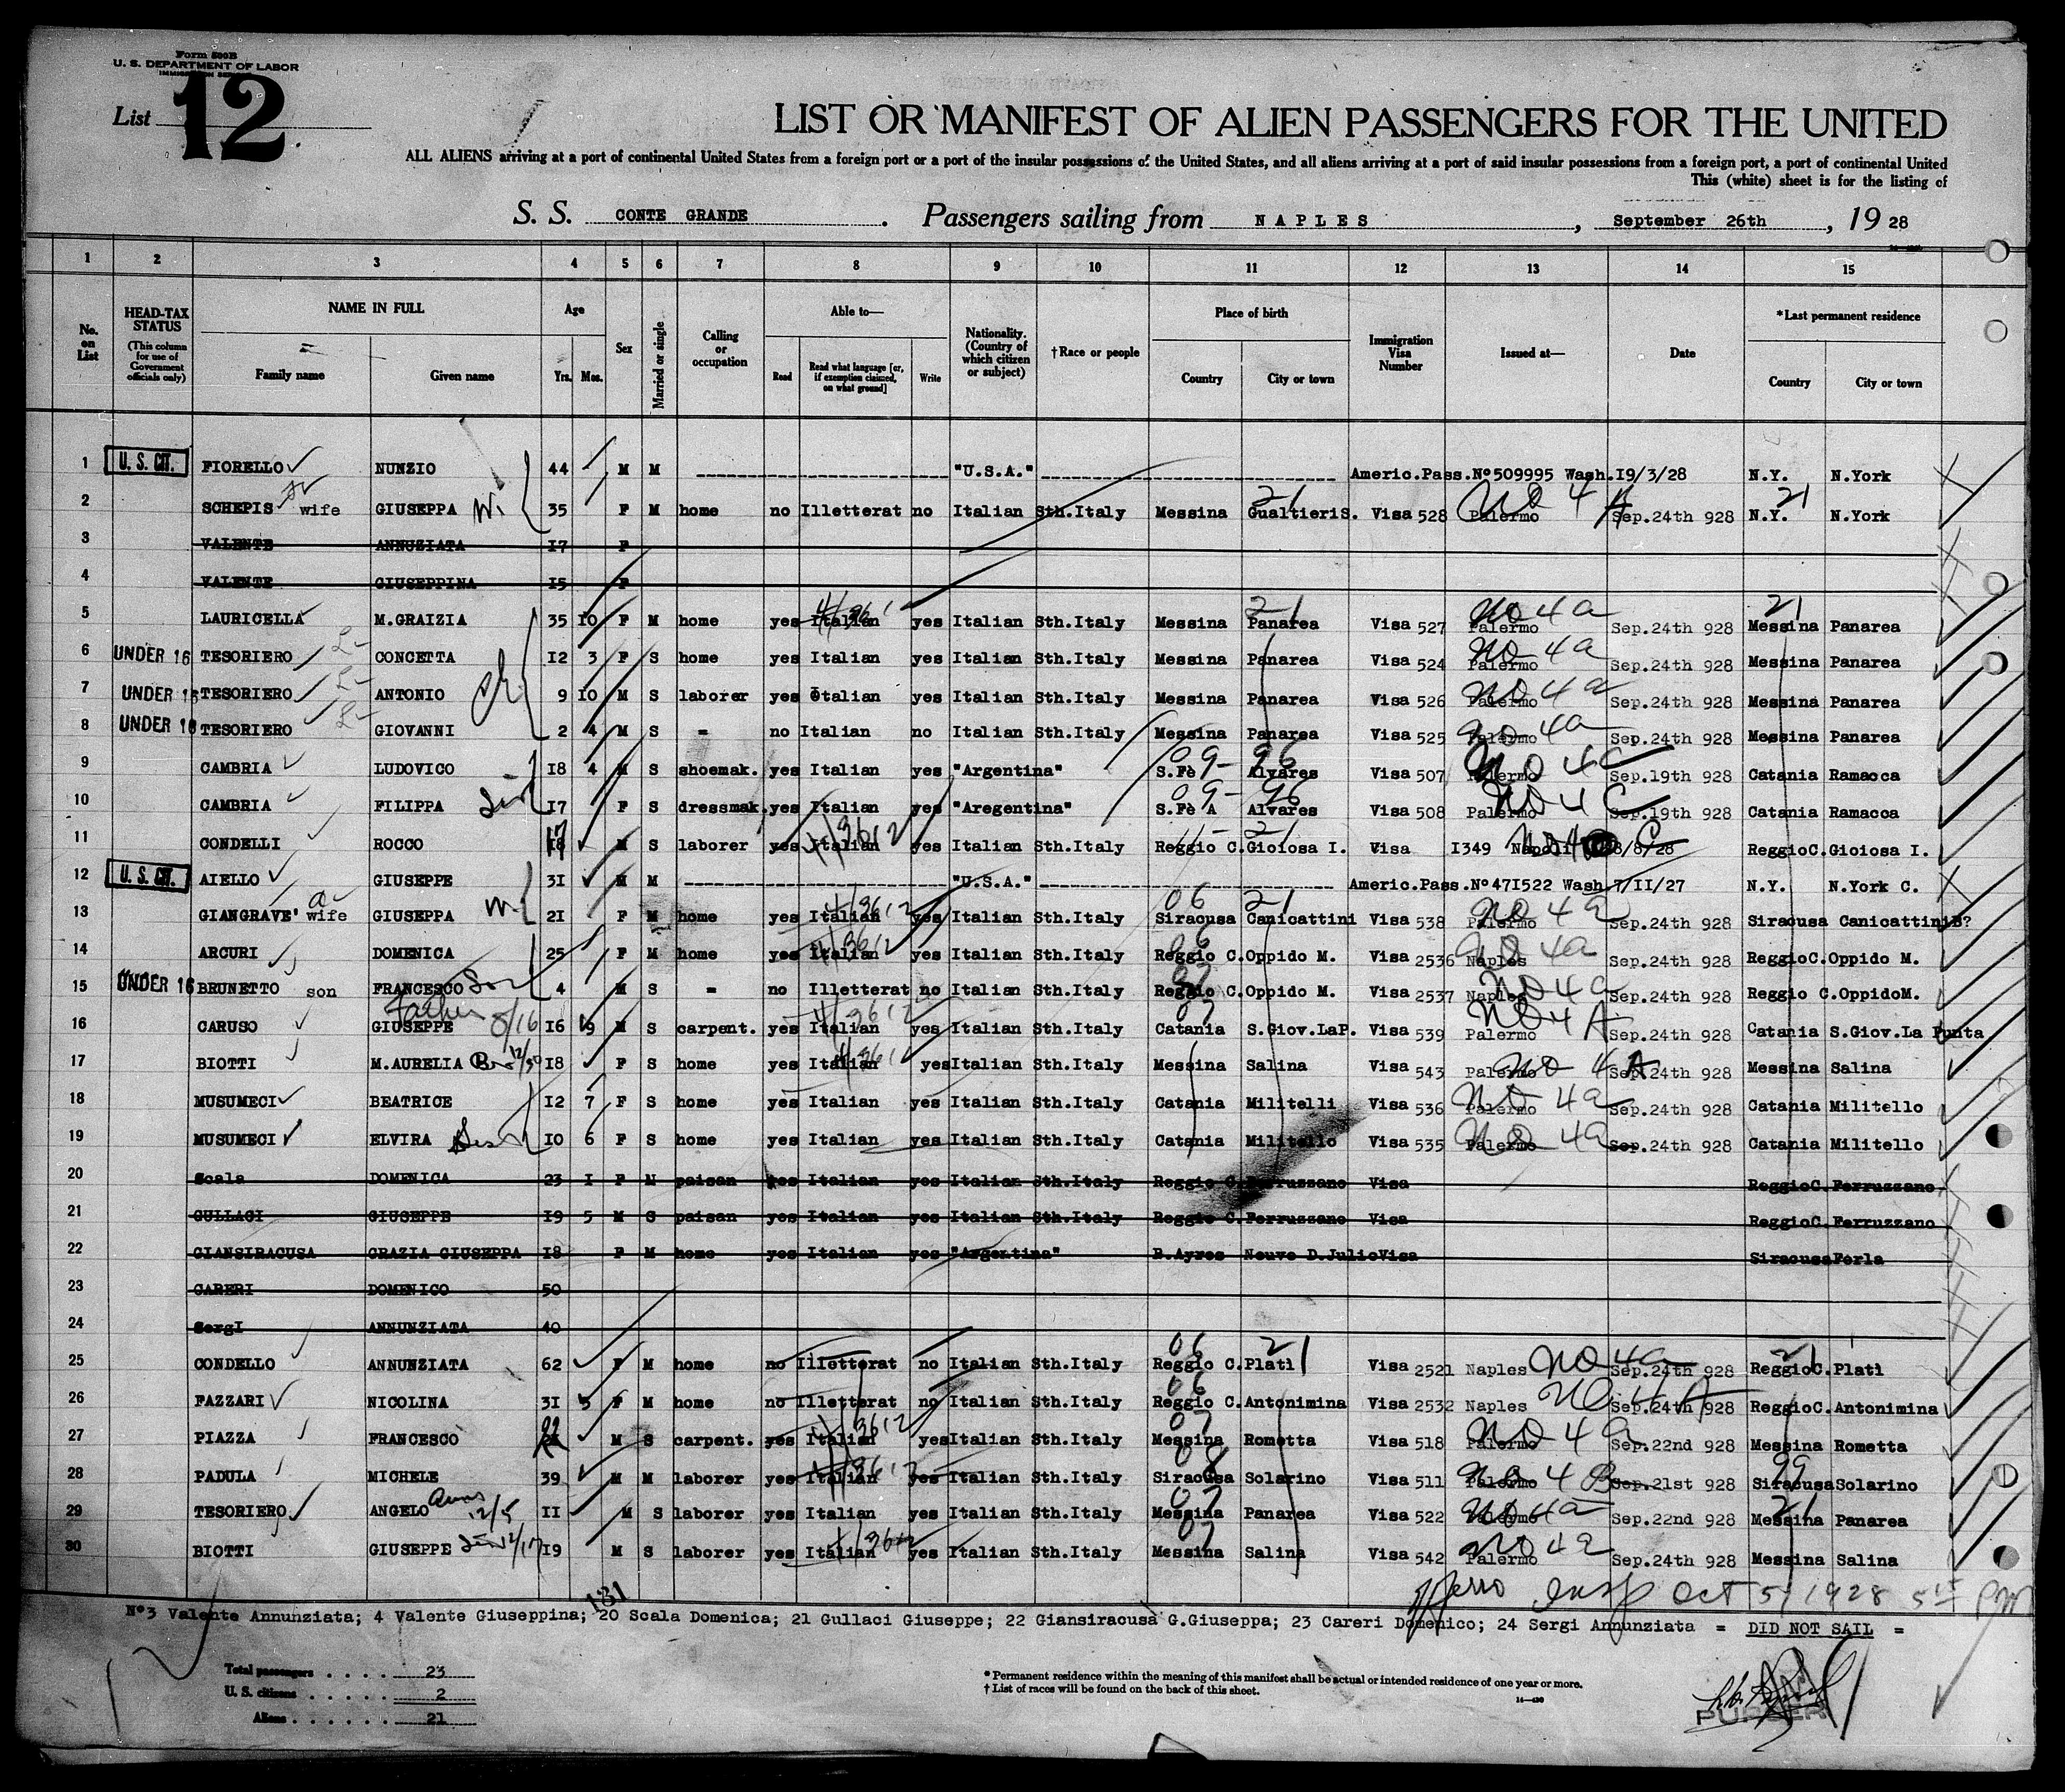 Form 500B
U. S. DEPARTMENT OF LABOR
IMMIGRATION SERVICE
List 12
LIST OR MANIFEST OF ALIEN PASSENGERS FOR THE UNITED
ALL ALIENS arriving at a port of continental United States from a foreign port or a port of the insular possessions of the United States, and all aliens arriving at a port of said insular possessions from a foreign port, a port of continental United
This (white) sheet is for the listing of
S. S. CONTE GRANDE. Passengers sailing from NAPLES, September 26th, 19 28
1 2 3 4 5 6 7 8 9 10 11 12 13 14 15
No. on List
HEAD-TAX STATUS (This column for use of Government officials only)
NAME IN FULL Family name Given name
Age Yrs. Mos.
Sex
Married or single
Calling or occupation
Able to— Read Read what language [or, if exemption claimed, on what ground] Write
Nationality. (Country of which citizen or subject)
†Race or people
Place of birth Country City or town
Immigration Visa Number
Issued at—
Date
*Last permanent residence Country City or town
1 U. S. CIT. FIORELLO NUNZIO 44 M M "U.S.A." Americ.Pass.Nº509995 Wash.I9/3/28 N.Y. N.York
2 SCHEPIS wife GIUSEPPA W. 35 F M home no Illetterat no Italian Sth.Italy Messina GualtieriS. 21 Visa 528 Palermo No 4 A Sep.24th 928 N.Y. 21 N.York
3 VALENTE ANNUZIATA I7 F
4 VALENTE GIUSEPPINA I5 F
5 LAURICELLA M.GRAIZIA 35 IO F M home yes Italian yes Italian Sth.Italy Messina Panarea 21 Visa 527 Palermo No 4a Sep.24th 928 Messina 21 Panarea
6 UNDER 16 TESORIERO CONCETTA I2 3 F S home yes Italian yes Italian Sth.Italy Messina Panarea Visa 524 Palermo No 4a Sep.24th 928 Messina Panarea
7 UNDER 16 TESORIERO ANTONIO 9 IO M S laborer yes Italian yes Italian Sth.Italy Messina Panarea Visa 526 Palermo No 4a Sep.24th 928 Messina Panarea
8 UNDER 16 TESORIERO GIOVANNI 2 4 M S = no Italian no Italian Sth.Italy Messina Panarea Visa 525 Palermo No 4a Sep.24th 928 Messina Panarea
9 CAMBRIA LUDOVICO I8 4 M S shoemak. yes Italian yes "Argentina" S.Fè 09-96 Alvares Visa 507 Palermo No 4C Sep.I9th 928 Catania Ramacca
10 CAMBRIA FILIPPA I7 F S dressmak. yes Italian yes "Aregentina" S.Fè A 09-96 Alvares Visa 508 Palermo No 4C Sep.I9th 928 Catania Ramacca
11 CONDELLI ROCCO 17 M S laborer yes Italian yes Italian Sth.Italy Reggio C.Gioiosa I. 11-21 Visa I349 Napoli 8/8/28 ReggioC.Gioiosa I.
12 U. S. CIT. AIELLO GIUSEPPE 3I M M "U.S.A." Americ.Pass.Nº47I522 Wash 7/II/27 N.Y. N.York C.
13 GIANGRAVE' wife GIUSEPPA W. 2I F M home yes Italian yes Italian Sth.Italy 06 21 Siracusa Canicattini Visa 538 Palermo No 4a Sep.24th 928 Siracusa CanicattiniB?
14 ARCURI DOMENICA 25 F M home yes Italian yes Italian Sth.Italy 06 Reggio C.Oppido M. Visa 2536 Naples No 4a Sep.24th 928 ReggioC.Oppido M.
15 UNDER 16 BRUNETTO son FRANCESCO Son 4 M S = no Illetterat no Italian Sth.Italy Reggio C.Oppido M. Visa 2537 Naples No 4a Sep.24th 928 Reggio C.OppidoM.
16 CARUSO GIUSEPPE Father 8/16 I6 9 M S carpent. yes Italian yes Italian Sth.Italy 07 Catania S.Giov.LaP. Visa 539 Palermo No 4 A Sep.24th 928 Catania S.Giov.La Punta
17 BIOTTI M.AURELIA I8 F S home yes Italian yes Italian Sth.Italy Messina Salina Visa 543 Palermo No 4 A Sep.24th 928 Messina Salina
18 MUSUMECI BEATRICE I2 7 F S home yes Italian yes Italian Sth.Italy Catania Militelli Visa 536 Palermo No 4a Sep.24th 928 Catania Militello
19 MUSUMECI ELVIRA IO 6 F S home yes Italian yes Italian Sth.Italy Catania Militello Visa 535 Palermo No 4a Sep.24th 928 Catania Militello
20 Scala DOMENICA 23 I F M paisan yes Italian yes Italian Sth.Italy Reggio C.Ferruzzano Visa ReggioC.Ferruzzano
21 GULLACI GIUSEPPE I9 5 M S paisan yes Italian yes Italian Sth.Italy Reggio C.Ferruzzano Visa ReggioC.Ferruzzano
22 GIANSIRACUSA GRAZIA GIUSEPPA I8 F M home yes Italian yes "Argentina" B.Ayres Neuve D.JulioVisa SiracusaFerla
23 CARERI DOMENICO 50
24 SergI ANNUNZIATA 40
25 CONDELLO ANNUNZIATA 62 F M home no Illetterat no Italian Sth.Italy 06 21 Reggio C.Platì Visa 2521 Naples No 4a Sep.24th 928 ReggioC.Platì 21
26 FAZZARI NICOLINA 3I 5 F M home no Illetterat no Italian Sth.Italy 06 Reggio C.Antonimina Visa 2532 Naples No 4 A Sep.24th 928 ReggioC.Antonimina
27 PIAZZA FRANCESCO M S carpent. yes Italian yes Italian Sth.Italy 07 Messina Rometta Visa 518 Palermo No 4a Sep.22nd 928 Messina Rometta
28 PADULA MICHELE 39 M M laborer yes Italian yes Italian Sth.Italy 08 Siracusa Solarino Visa 511 Palermo No 4 B Sep.21st 928 Siracusa 99 Solarino
29 TESORIERO ANGELO 12/5 II M S laborer yes Italian yes Italian Sth.Italy 07 Messina Panarea Visa 522 Palermo No 4a Sep.22nd 928 Messina 21 Panarea
30 BIOTTI GIUSEPPE 12/17 I9 M S laborer yes Italian yes Italian Sth.Italy 07 Messina Salina Visa 542 Palermo No 4a Sep.24th 928 Messina Salina
181
Insp Oct 5/1928 PM
Nº3 Valente Annunziata; 4 Valente Giuseppina; 20 Scala Domenica; 21 Gullaci Giuseppe; 22 Giansiracusa G.Giuseppa; 23 Careri Domenico; 24 Sergi Annunziata = DID NOT SAIL =
Total passengers . . . . 23
U. S. citizens . . . . . 2
Aliens . . . . . . 21
* Permanent residence within the meaning of this manifest shall be actual or intended residence of one year or more.
† List of races will be found on the back of this sheet.
14—430
PURSER